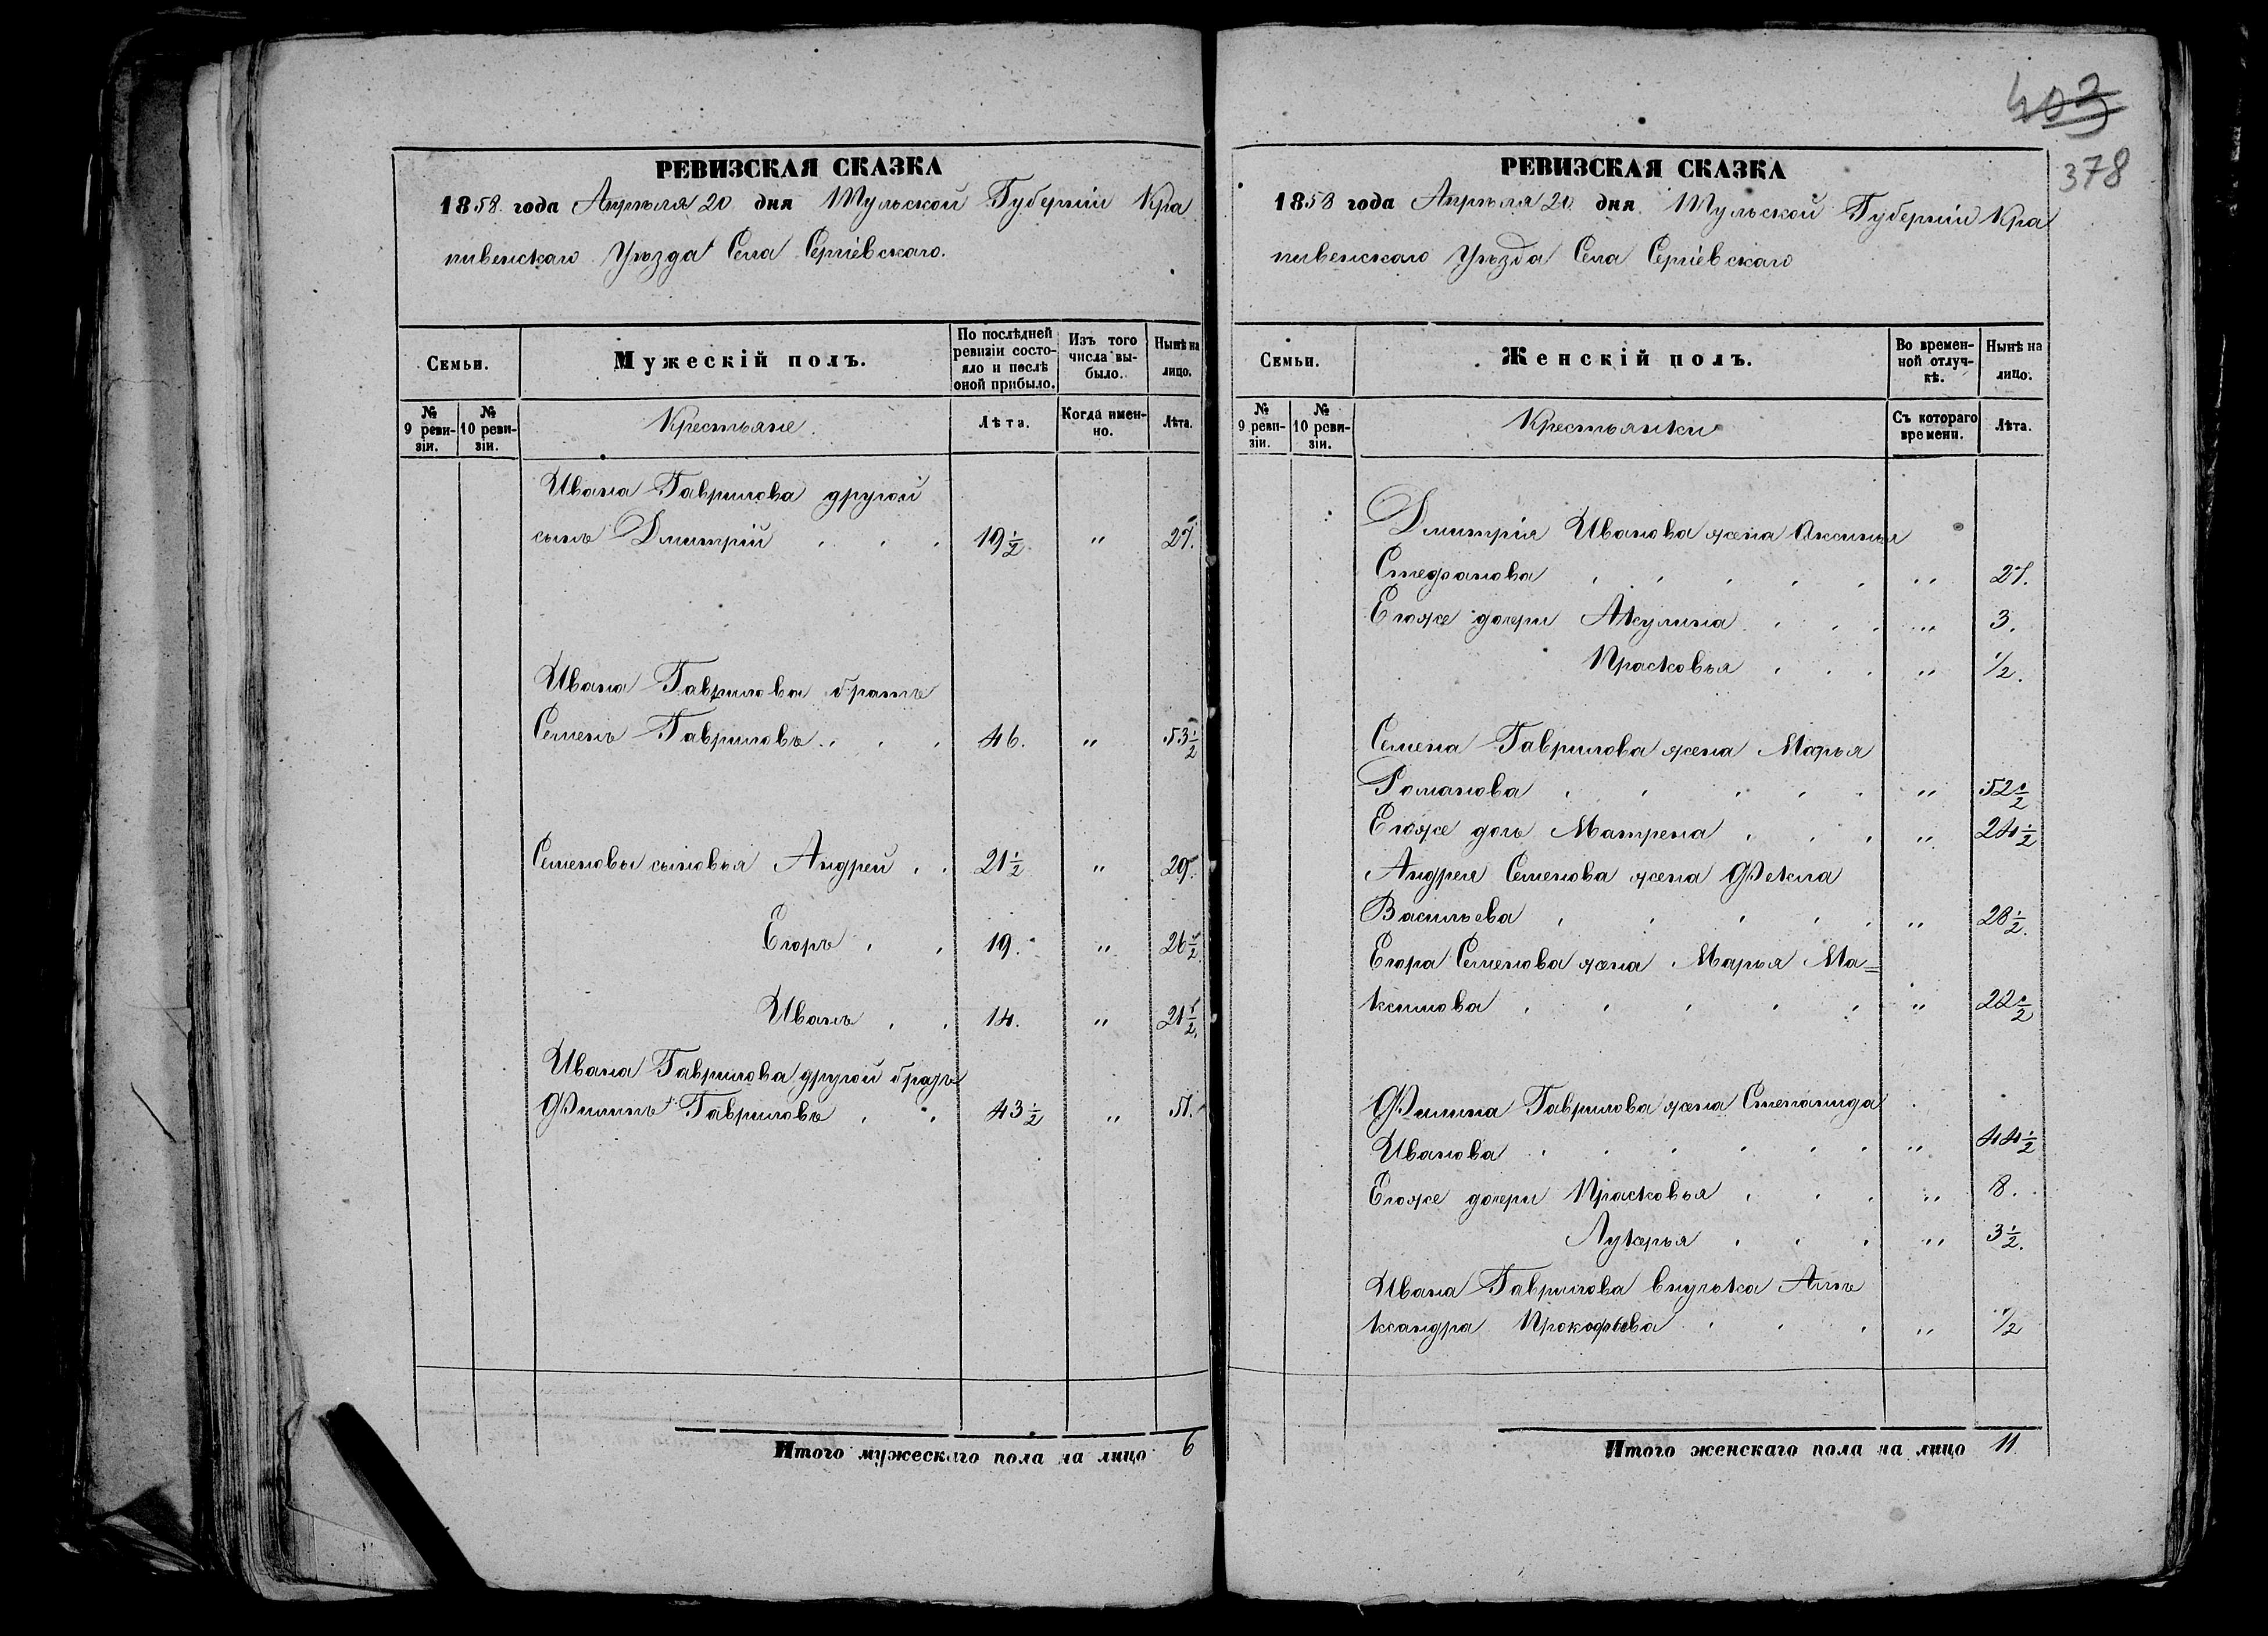 403
378
РЕВИЗСКАЯ СКАЗКА
1858. года Апрѣля 20 дня Тульской Губерніи Кра
пивенскаго Уѣзда Села Сергіевскаго.
Семьи.
Мужескій полъ.
По послѣдней ревизіи состо-
яло и послѣ оной прибыло.
Изъ того числа вы-
было.
Нынѣ на лицо.
№ 9 реви-
зіи.
№ 10 реви-
зіи.
Крестьяне.
Лѣта.
Когда имен-
но.
Лѣта.
Ивана Гаврилова другой
сынъ Дмитрій . . . 19 1/2 " 27.
Ивана Гаврилова братъ
Семенъ Гавриловъ . . . 46. " 53 1/2
Семеновы сыновья Андрей . . 21 1/2 " 29.
Егоръ . . 19. " 26 1/2
Иванъ . . 14. " 21 1/2.
Ивана Гаврилова другой братъ
Филипъ Гавриловъ . . 43 1/2 " 51.
Итого мужескаго пола на лицо 6
РЕВИЗСКАЯ СКАЗКА
1858 года Апрѣля 20 дня Тульской Губерніи Кра
пивенскаго Уѣзда Села Сергіевскаго
Семьи.
Женскій полъ.
Во времен-
ной отлуч-
кѣ.
Нынѣ на лицо.
№ 9 реви-
зіи.
№ 10 реви-
зіи.
Крестьянки
Съ котораго времени.
Лѣта.
Дмитрія Иванова жена Аксинья
Стефанова . . . . . " 27.
Егоже дочери Акулина . . . " 3.
Прасковья . . . " 1/2.
Семена Гаврилова жена Марья
Романова . . . . . " 52 1/2
Егоже дочь Матрена . . . " 24 1/2
Андрея Семенова жена Фекла
Васильева . . . . . " 28 1/2.
Егора Семенова жена Марья Ма=
ксимова . . . . . " 22 1/2
Филипа Гаврилова жена Степанида
Иванова . . . . . . " 44 1/2
Егоже дочери Прасковья . . . " 8.
Лукерья . . . " 3 1/2.
Ивана Гаврилова внучька Алъ
ксандра Прокофьева . . . " 1/2
Итого женскаго пола на лицо 11.